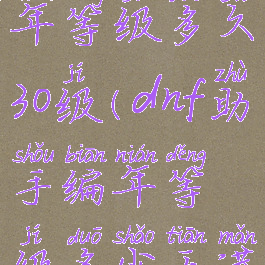 年等级多久
jí zhù
30级(dnf助
shǒu biān nián děng
手编年等
jí duō shǎo tiān mǎn
级多少天满